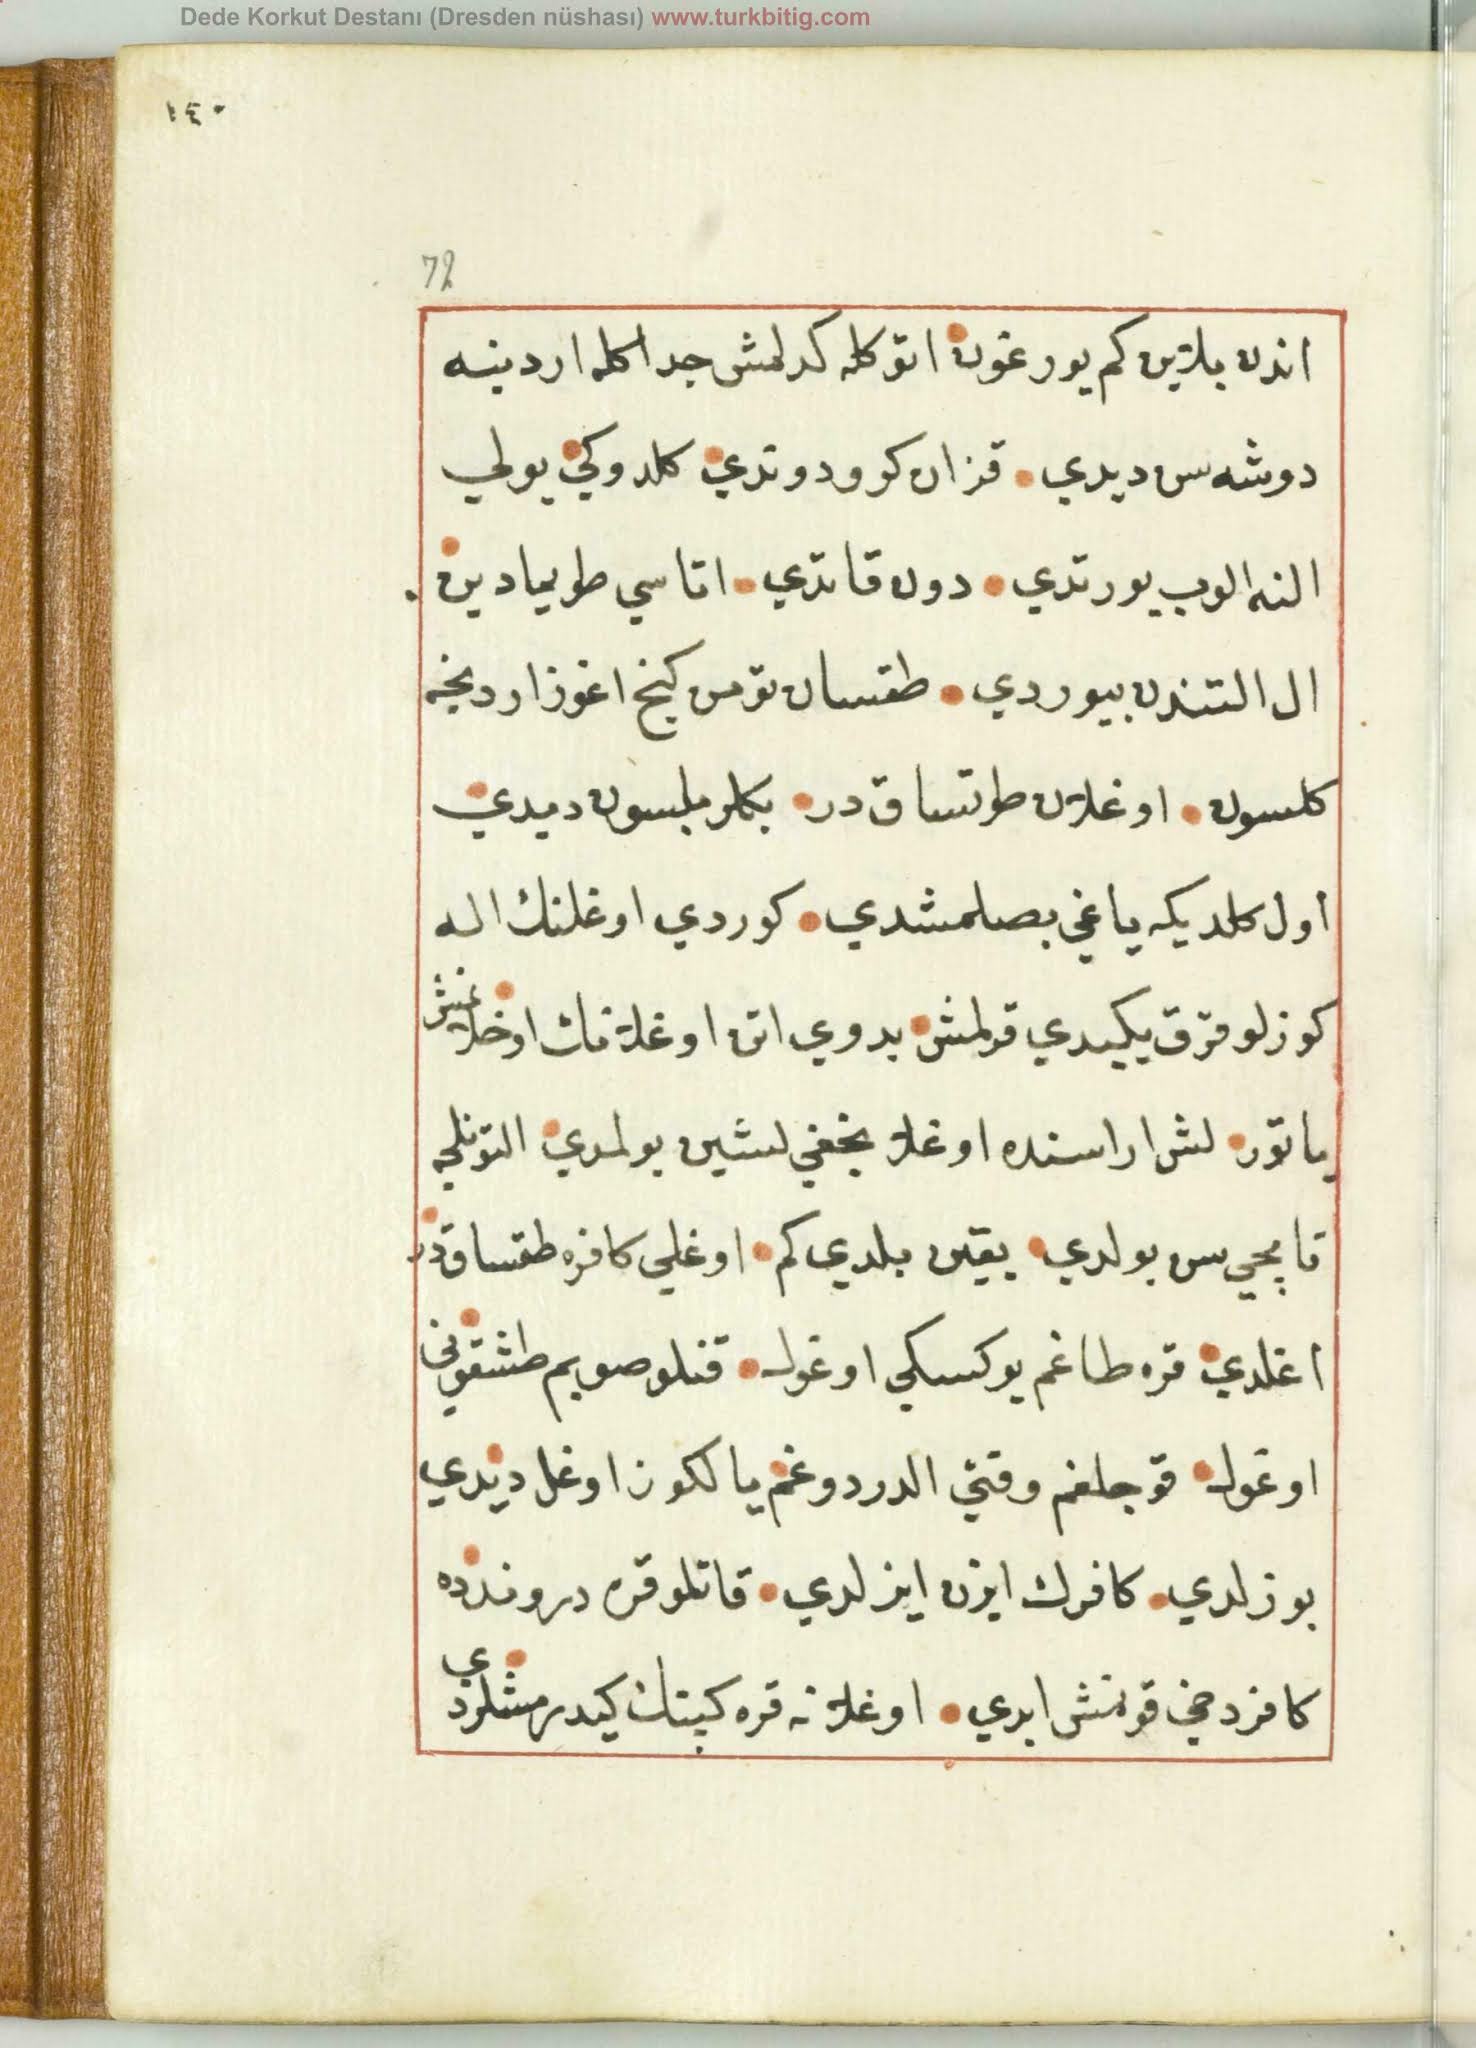 Dede Korkut Destanı (Dresden nüshası) www.turkbitig.com
١٤٠
72
اندن بلرين كم يورغون اتوكله كدلمش جداكله اردينه
دوشه سن ديدي قزان كرو دوندي كلدوكي يولي
النه الوب يورتدي دون قاتدي اتاسي طويمادين
ال التندن بيوردي طقسان تومن كنج اغوز اردمجه
كلسون اوغلان طوتساق در بكلر بلسون ديدي
اول كلديكه ياغي بصلمشدي كوردي اوغلنك اله
كوزلو قرق يكيدي قرلمش بدوي اتن اوغلانك اوخلانمش
ياتور لش اراسنده اوغلانجغي لشين بولمدي التونلجه
قامچي سن بولدي يقين بلدي كم اوغلي كافره طقساقدر
اغلدي قره طاغم يوكسكي اوغول قنلو صويم طشقوني
اوغول قوجلغم وقتي الدردوغم يالكوز اوغل ديدي
بوزلدي كافرك ايزن ايزلدي قاتلو قره دروندده
كافر دخي قونمش ايدي اوغلانه قره كپنك كيدرمشلردي